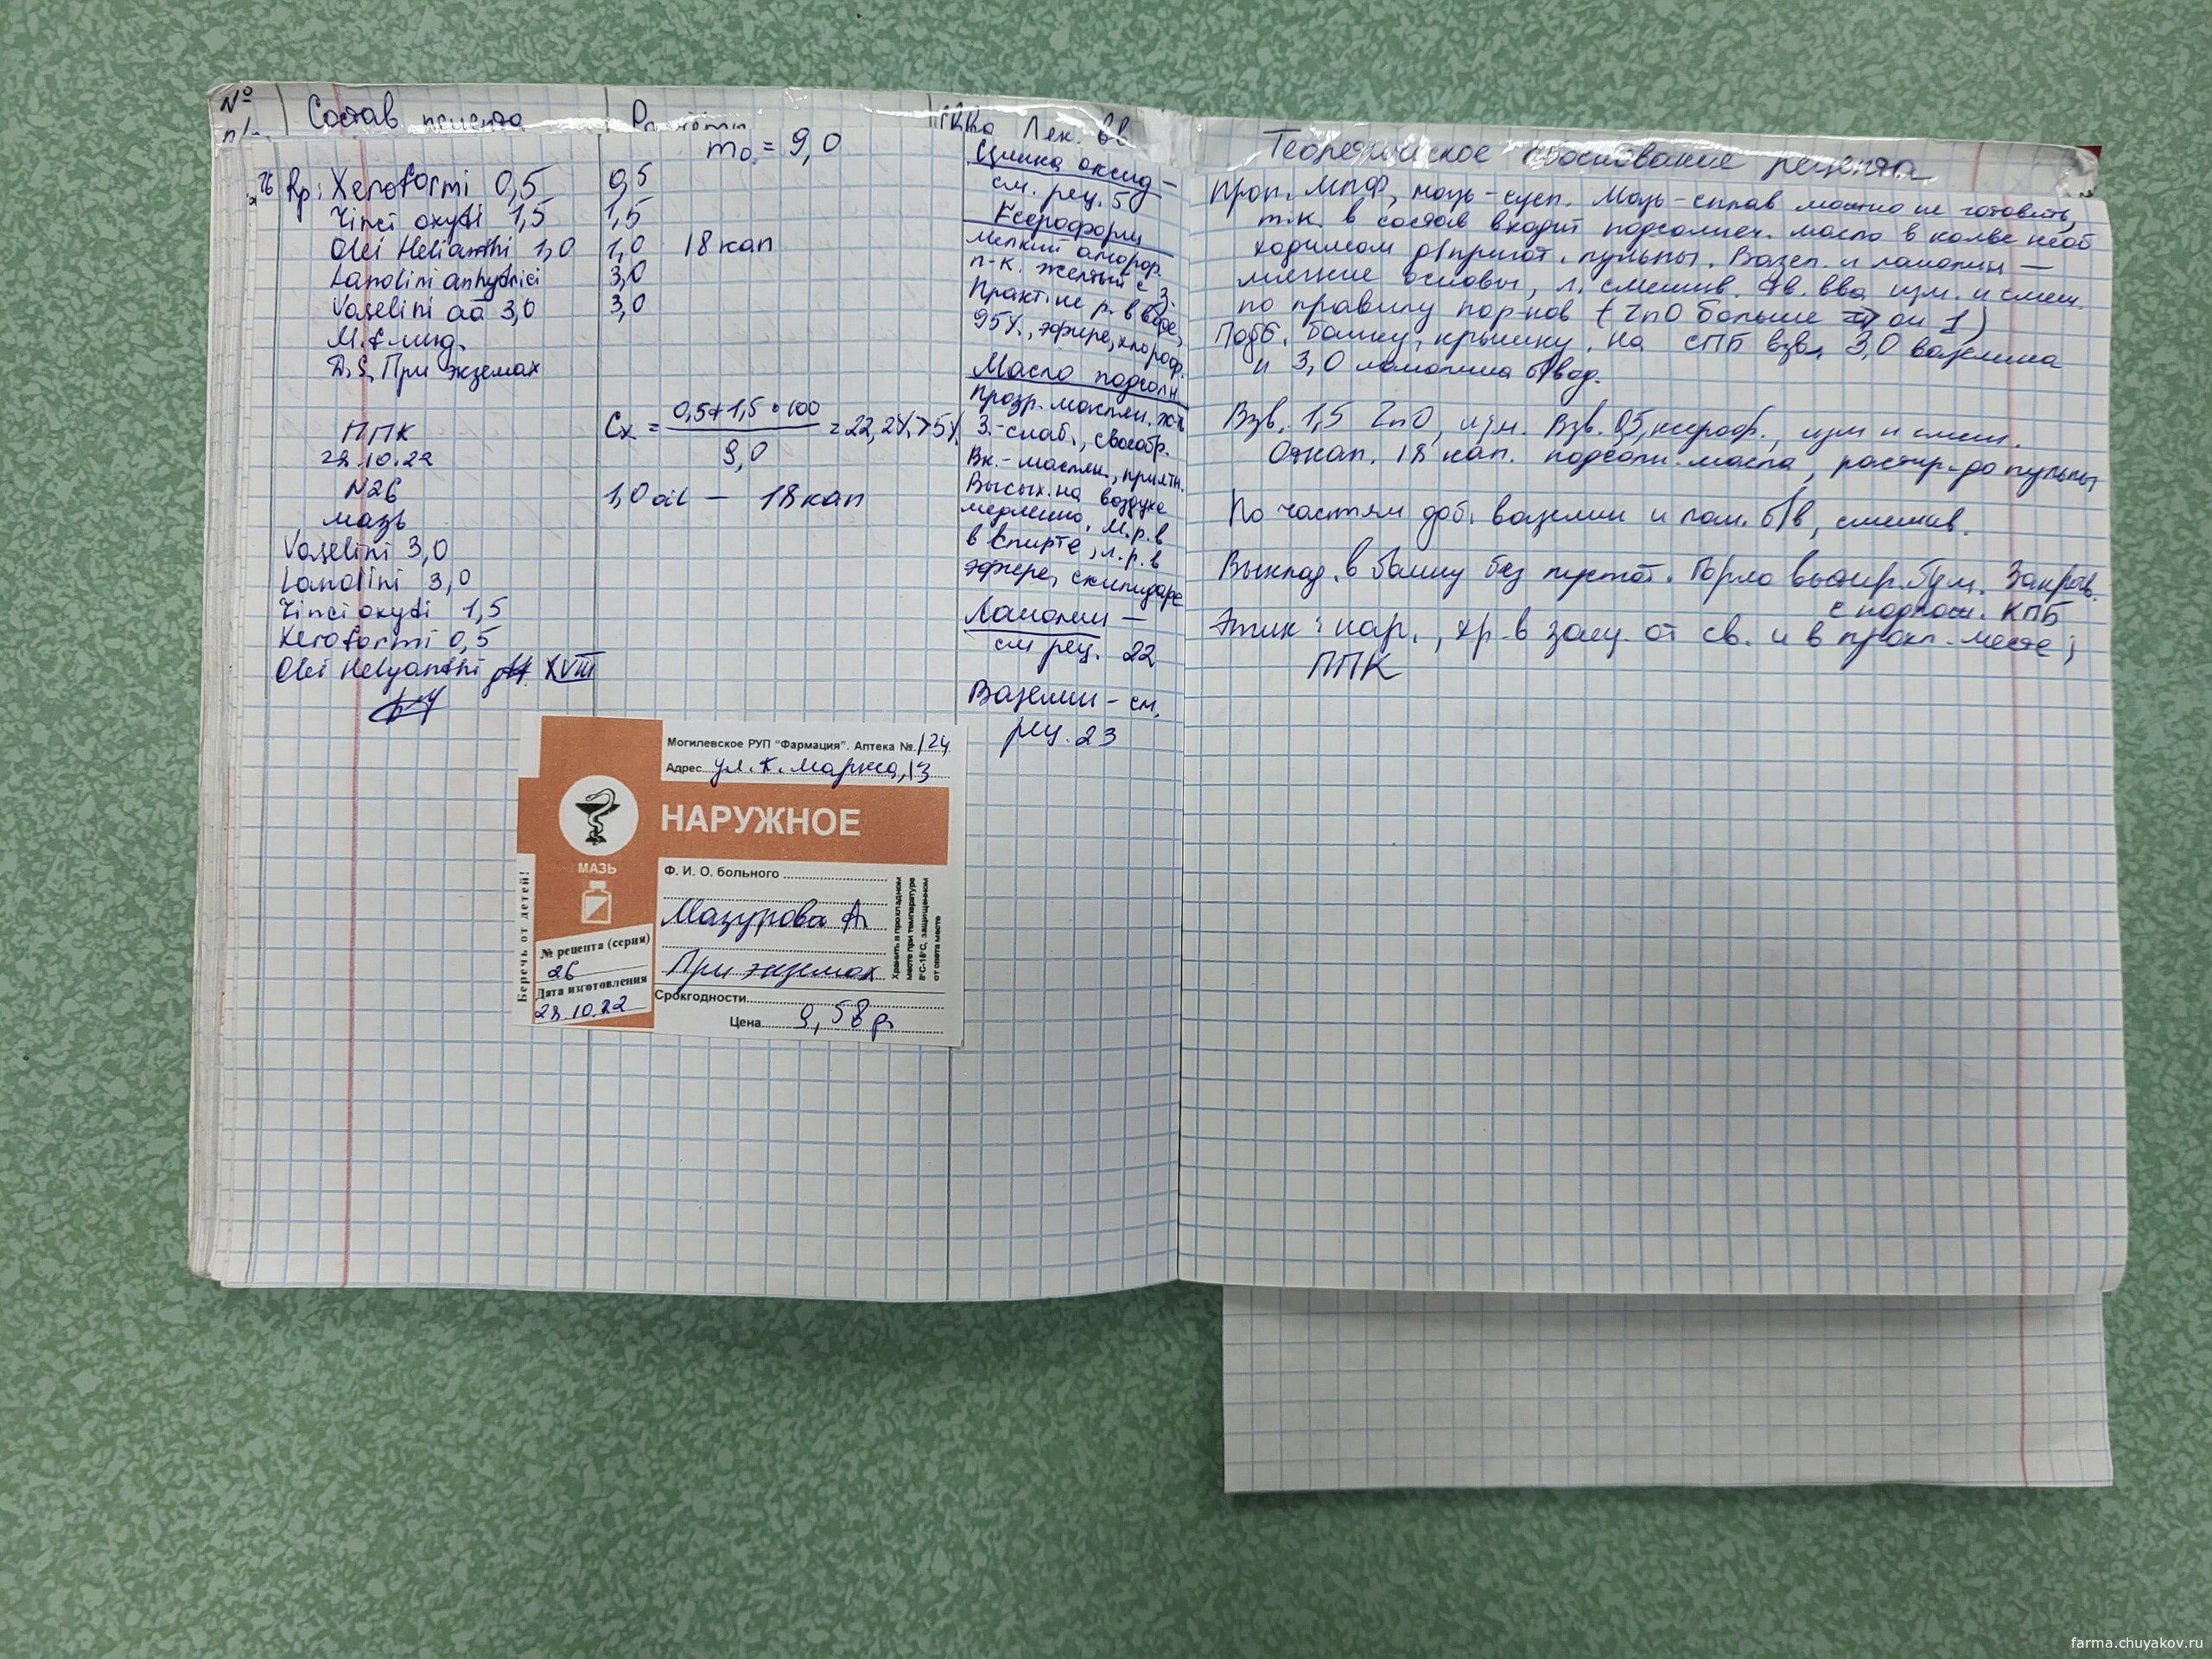 № п/п
Состав рецепта
Расчёты
Лек. вв
26
Rp: Xeroformi 0,5
Zinci oxydi 1,5
Olei Helianthi 1,0
Lanolini anhydrici
Vaselini aa 3,0
M.f. ung.
D.S. При экземах
ППК
28.10.22
N26
мазь
Vaselini 3,0
Lanolini 3,0
Zinci oxydi 1,5
Xeroformi 0,5
Olei Helyanthi gtt. XVIII
m₀ = 9,0
0,5
1,5
1,0 18 кап
3,0
3,0
Cx = 0,5+1,5•100
9,0
= 22,2%>5%
1,0 oil — 18 кап
Цинка оксид –
см. рец. 5
Ксероформ
Мелкий аморф.
п-к. желтый с З.
Практ. не р. в воде,
95%, эфире, хлороф.
Масло подсолн.
Прозр. маслян. ж-ть
З.-слаб., своеобр.
Вк.- маслян., приятн.
Высых. на воздухе
медленно. М.р. в
в спирте, л.р. в
эфире, скипидаре
Ланолин –
см рец. 22
Вазелин – см.
рец. 23
Теоретическое обоснование рецепта
Проп. МПФ, мазь-сусп. Мазь-сплав можно не готовить,
т.к. в состав входит подсолнеч. масло в кол-ве необ
ходимом д/пригот. пульпы. Вазел. и ланолин —
мягкие основы, л. смешив. Тв. вва изм. и смеш.
по правилу пор-ков (ZnO больше
Подб. банку, крышку. На СПБ взв. 3,0 вазелина
и 3,0 ланолина б/вод.
Взв. 1,5 ZnO, изм. Взв. 0,5 ксероф., изм и смеш.
Откап. 18 кап. подсолн. масла, растир. до пульпы
По частям доб. вазелин и лан. б/в, смешив.
Выклад. в банку без пустот. Горло вытир. бум. Закрыв.
с подлож. КПБ
Этик: нар., хр. в защ. от св. и в прохл. месте;
ППК
Могилевское РУП "Фармация". Аптека № 124
Адрес ул. К. Маркса, 13
НАРУЖНОЕ
МАЗЬ
Беречь от детей!
Ф. И. О. больного
Мазурова А.
При экземах
№ рецепта (серия)
26
Дата изготовления
28.10.22
Срокгодности
Цена 9,58 р.
Хранить в прохладном
месте при температуре
8°С-15°С, защищенном
от света месте
farma.chuyakov.ru